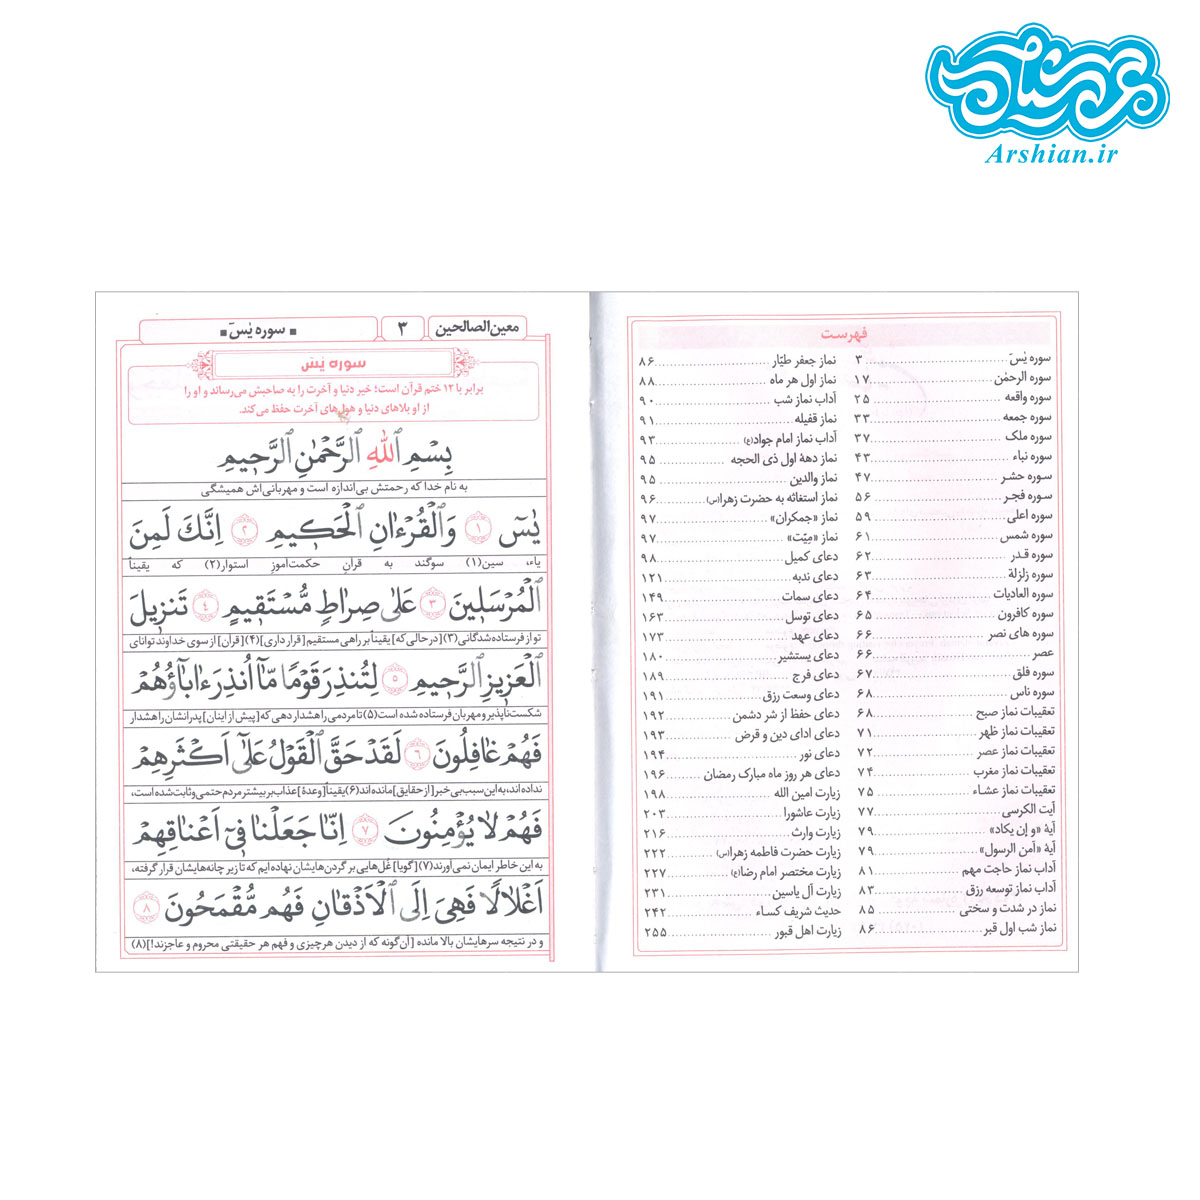 عرشیان
Arshian.ir
فهرست
سوره یٰسٓ ۳
سوره الرحمٰن ۱۷
سوره واقعه ۲۵
سوره جمعه ۳۳
سوره ملک ۳۷
سوره نباء ۴۳
سوره حشر ۴۷
سوره فجر ۵۶
سوره اعلی ۵۹
سوره شمس ۶۱
سوره قدر ۶۲
سوره زلزلة ۶۳
سوره العادیات ۶۴
سوره کافرون ۶۵
سوره های نصر ۶۶
عصر ۶۶
سوره فلق ۶۷
سوره ناس ۶۸
تعقیبات نماز صبح ۶۸
تعقیبات نماز ظهر ۷۱
تعقیبات نماز عصر ۷۲
تعقیبات نماز مغرب ۷۴
تعقیبات نماز عشاء ۷۵
آیت الکرسی ۷۷
آیهٔ «و إن یکاد» ۷۹
آیهٔ «آمن الرسول» ۷۹
آداب نماز حاجت مهم ۸۱
آداب نماز توسعه رزق ۸۳
نماز در شدت و سختی ۸۵
نماز شب اول قبر ۸۶
نماز جعفر طیّار ۸۶
نماز اول هر ماه ۸۸
آداب نماز شب ۹۰
نماز قفیله ۹۱
آداب نماز امام جواد(ع) ۹۳
نماز دههٔ اول ذی الحجه ۹۵
نماز والدین ۹۵
نماز استغاثه به حضرت زهرا(س) ۹۶
نماز «جمکران» ۹۷
نماز «میّت» ۹۷
دعای کمیل ۹۸
دعای ندبه ۱۲۱
دعای سمات ۱۴۹
دعای توسل ۱۶۳
دعای عهد ۱۷۳
دعای یستشیر ۱۸۰
دعای فرج ۱۸۹
دعای وسعت رزق ۱۹۱
دعای حفظ از شر دشمن ۱۹۲
دعای ادای دین و قرض ۱۹۳
دعای نور ۱۹۴
دعای هر روز ماه مبارک رمضان ۱۹۶
زیارت امین الله ۱۹۸
زیارت عاشورا ۲۰۳
زیارت وارث ۲۱۶
زیارت حضرت فاطمه زهرا(س) ۲۲۲
زیارت مختصر امام رضا(ع) ۲۲۷
زیارت آل یاسین ۲۳۱
حدیث شریف کساء ۲۴۲
زیارت اهل قبور ۲۵۵
معین الصالحین ۳ ■ سوره یٰسٓ ■
سوره یٰسٓ
برابر با ۱۲ ختم قرآن است؛ خیر دنیا و آخرت را به صاحبش می‌رساند و او را
از او بلاهای دنیا و هول‌های آخرت حفظ می‌کند.
بِسْمِ ٱللهِ ٱلرَّحْمٰنِ ٱلرَّحٖیمِ
به نام خدا که رحمتش بی‌اندازه است و مهربانی‌اش همیشگی
یٰسٓ ۱ وَٱلْقُرْءٰانِ ٱلْحَکٖیمِ ۲ اِنَّکَ لَمِنَ
یاء، سین(۱) سوگند به قرآنِ حکمت‌آموزِ استوار(۲) که یقیناً
ٱلْمُرْسَلٖینَ ۳ عَلیٰ صِرٰاطٍ مُّسْتَقٖیمٍ ۴ تَنزٖیلَ
تو از فرستاده‌شدگانی(۳) [در حالی که] یقیناً بر راهی مستقیم [قرار داری](۴) [قرآن] از سوی خداوند توانای
ٱلْعَزٖیزِ ٱلرَّحٖیمِ ۵ لِتُنذِرَ قَوْمًا مّٰآ اُنذِرَ ءٰابٰآؤُهُمْ
شکست‌ناپذیر و مهربان فرستاده شده است(۵) تا مردمی را هشدار دهی که [پیش از اینان] پدرانشان را هشدار
فَهُمْ غٰافِلُونَ ۶ لَقَدْ حَقَّ ٱلْقَوْلُ عَلیٰٓ اَکْثَرِهِمْ
نداده‌اند، به این سبب بی خبر [از حقایق] مانده‌اند(۶) یقیناً [وعدهٔ] عذاب بر بیشتر مردم حتمی و ثابت شده است،
فَهُمْ لا یُؤْمِنُونَ ۷ اِنّٰا جَعَلْنٰا فٖیٓ اَعْنٰاقِهِمْ
به این خاطر ایمان نمی‌آورند(۷) [گویا] غُل‌هایی بر گردن‌هایشان نهاده‌ایم که تا زیر چانه‌هایشان قرار گرفته،
اَغْلٰالًا فَهِیَ اِلَی ٱلْاَذْقٰانِ فَهُم مُّقْمَحُونَ ۸
و در نتیجه سرهایشان بالا مانده [آن‌گونه که از دیدن هرچیزی و فهم هر حقیقتی محروم و عاجزند!](۸)